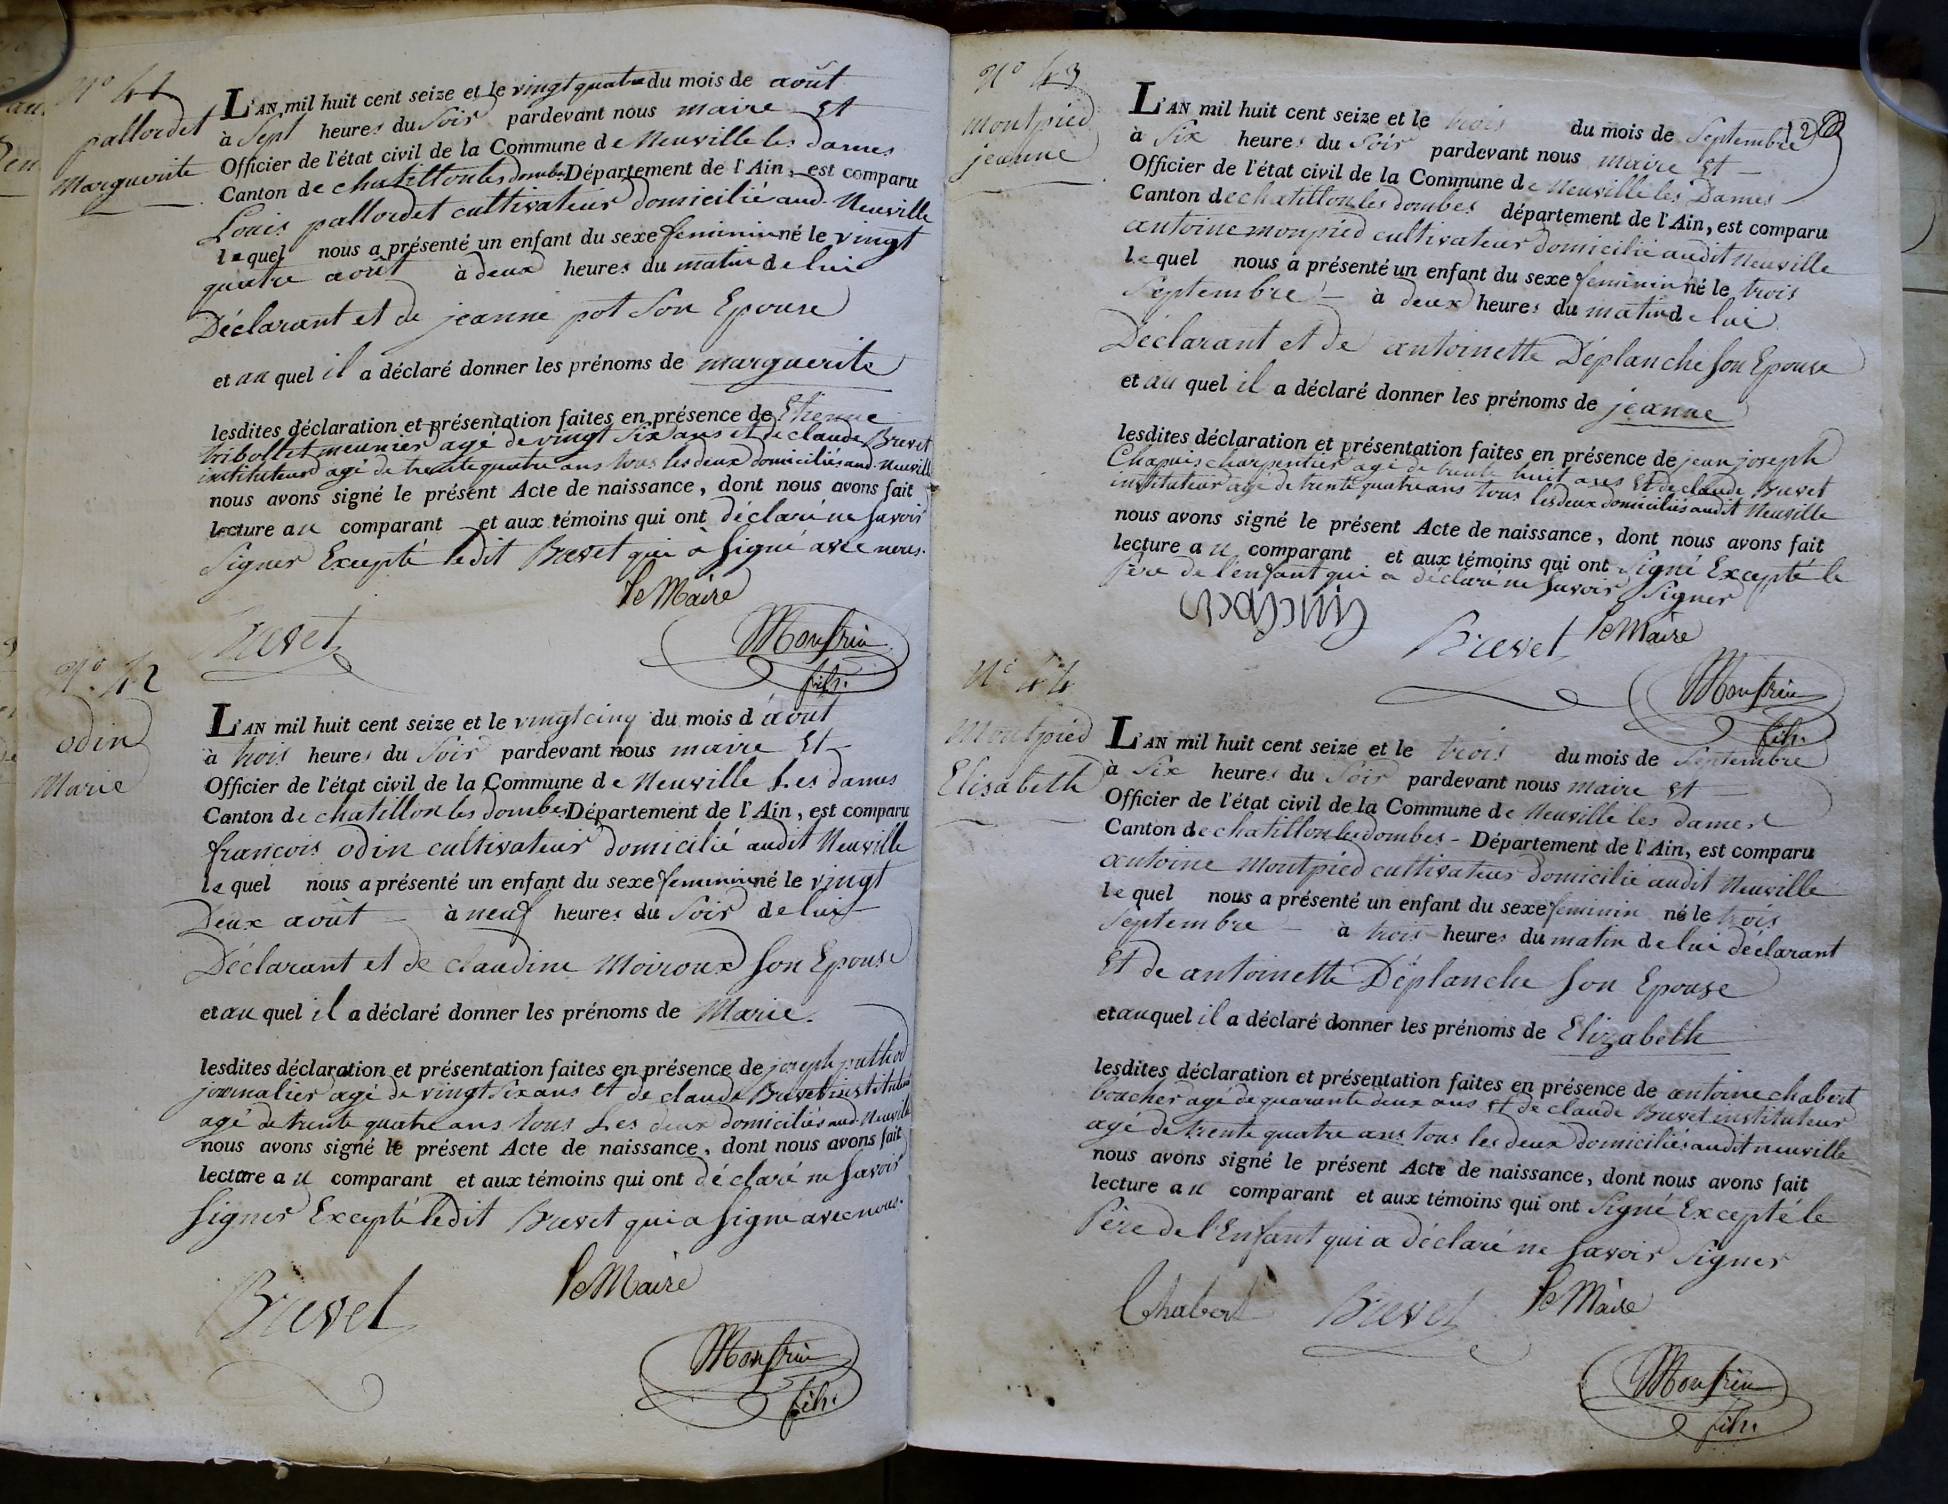 N° 41
pallordet
Marguerite
L'AN mil huit cent seize et le vingt quatre du mois de août
à Sept heures du Soir pardevant nous maire Et
Officier de l'état civil de la Commune de Neuville les dames
Canton de chatillon les dombes Département de l'Ain, est comparu
Louis pallordet cultivateur domicilié aud. Neuville
lequel nous a présenté un enfant du sexe feminin né le vingt
quatre août à deux heures du matin de lui
Déclarant et de jeanne pot Son Epouse
et au quel il a déclaré donner les prénoms de marguerite
lesdites déclaration et présentation faites en présence de Etienne
tribollet meunier agé de vingt Six ans et de claude Brevet
instituteur agé de trente quatre ans tous les deux domiciliés aud. neuville
nous avons signé le présent Acte de naissance, dont nous avons fait
lecture au comparant et aux témoins qui ont déclaré ne Savoir
Signer Excepté ledit Brevet qui a Signé avec nous.
le Maire
Brevet
Monfrin
fils.
N° 42
odin
Marie
L'AN mil huit cent seize et le vingt cinq du mois d'août
à trois heures du Soir pardevant nous maire Et
Officier de l'état civil de la Commune de Neuville Les dames
Canton de chatillon les dombes Département de l'Ain, est comparu
francois odin cultivateur domicilié audit Neuville
lequel nous a présenté un enfant du sexe feminin né le vingt
Deux août à neuf heures du Soir de lui
Déclarant et de claudine Moiroux Son Epouse
et au quel il a déclaré donner les prénoms de Marie.
lesdites déclaration et présentation faites en présence de joseph
journalier agé de vingt Six ans et de claude Brevet instituteur
agé de trente quatre ans tous Les deux domiciliés aud. Neuville
nous avons signé le présent Acte de naissance, dont nous avons fait
lecture au comparant et aux témoins qui ont déclaré ne Savoir
Signer Excepté ledit Brevet qui a Signé avec nous.
Brevet
le Maire
Monfrin
fils.
N° 43
montpied
jeanne
12
L'AN mil huit cent seize et le trois du mois de Septembre
à Six heures du Soir pardevant nous maire Et
Officier de l'état civil de la Commune de Neuville les Dames
Canton de chatillon les dombes département de l'Ain, est comparu
antoine monpied cultivateur domicilié audit Neuville
lequel nous a présenté un enfant du sexe feminin né le trois
Septembre à deux heures du matin de lui
Déclarant et de antoinette Déplanche Son Epouse
et au quel il a déclaré donner les prénoms de jeanne
lesdites déclaration et présentation faites en présence de jean joseph
Chapuis charpentier agé de trente huit ans Et de claude Brevet
instituteur agé de trente quatre ans tous les deux domiciliés audit Neuville
nous avons signé le présent Acte de naissance, dont nous avons fait
lecture au comparant et aux témoins qui ont Signé Excepté le
Père de l'enfant qui a déclaré ne Savoir Signer
Brevet
le Maire
Monfrin
fils.
N° 44
Montpied
Elisabeth
L'AN mil huit cent seize et le trois du mois de Septembre
à Six heures du Soir pardevant nous maire Et
Officier de l'état civil de la Commune de Neuville les dames
Canton de chatillon les dombes - Département de l'Ain, est comparu
antoine Montpied cultivateur domicilié audit Neuville
lequel nous a présenté un enfant du sexe feminin né le trois
Septembre à trois heures du matin de lui déclarant
Et de antoinette Déplanche Son Epouse
et auquel il a déclaré donner les prénoms de Elizabeth
lesdites déclaration et présentation faites en présence de antoine chabert
boucher agé de quarante deux ans Et de claude Brevet instituteur
agé de trente quatre ans tous les deux domiciliés audit neuville
nous avons signé le présent Acte de naissance, dont nous avons fait
lecture au comparant et aux témoins qui ont Signé Excepté le
Père de l'Enfant qui a déclaré ne Savoir Signer
Chabert
Brevet
le Maire
Monfrin
fils.